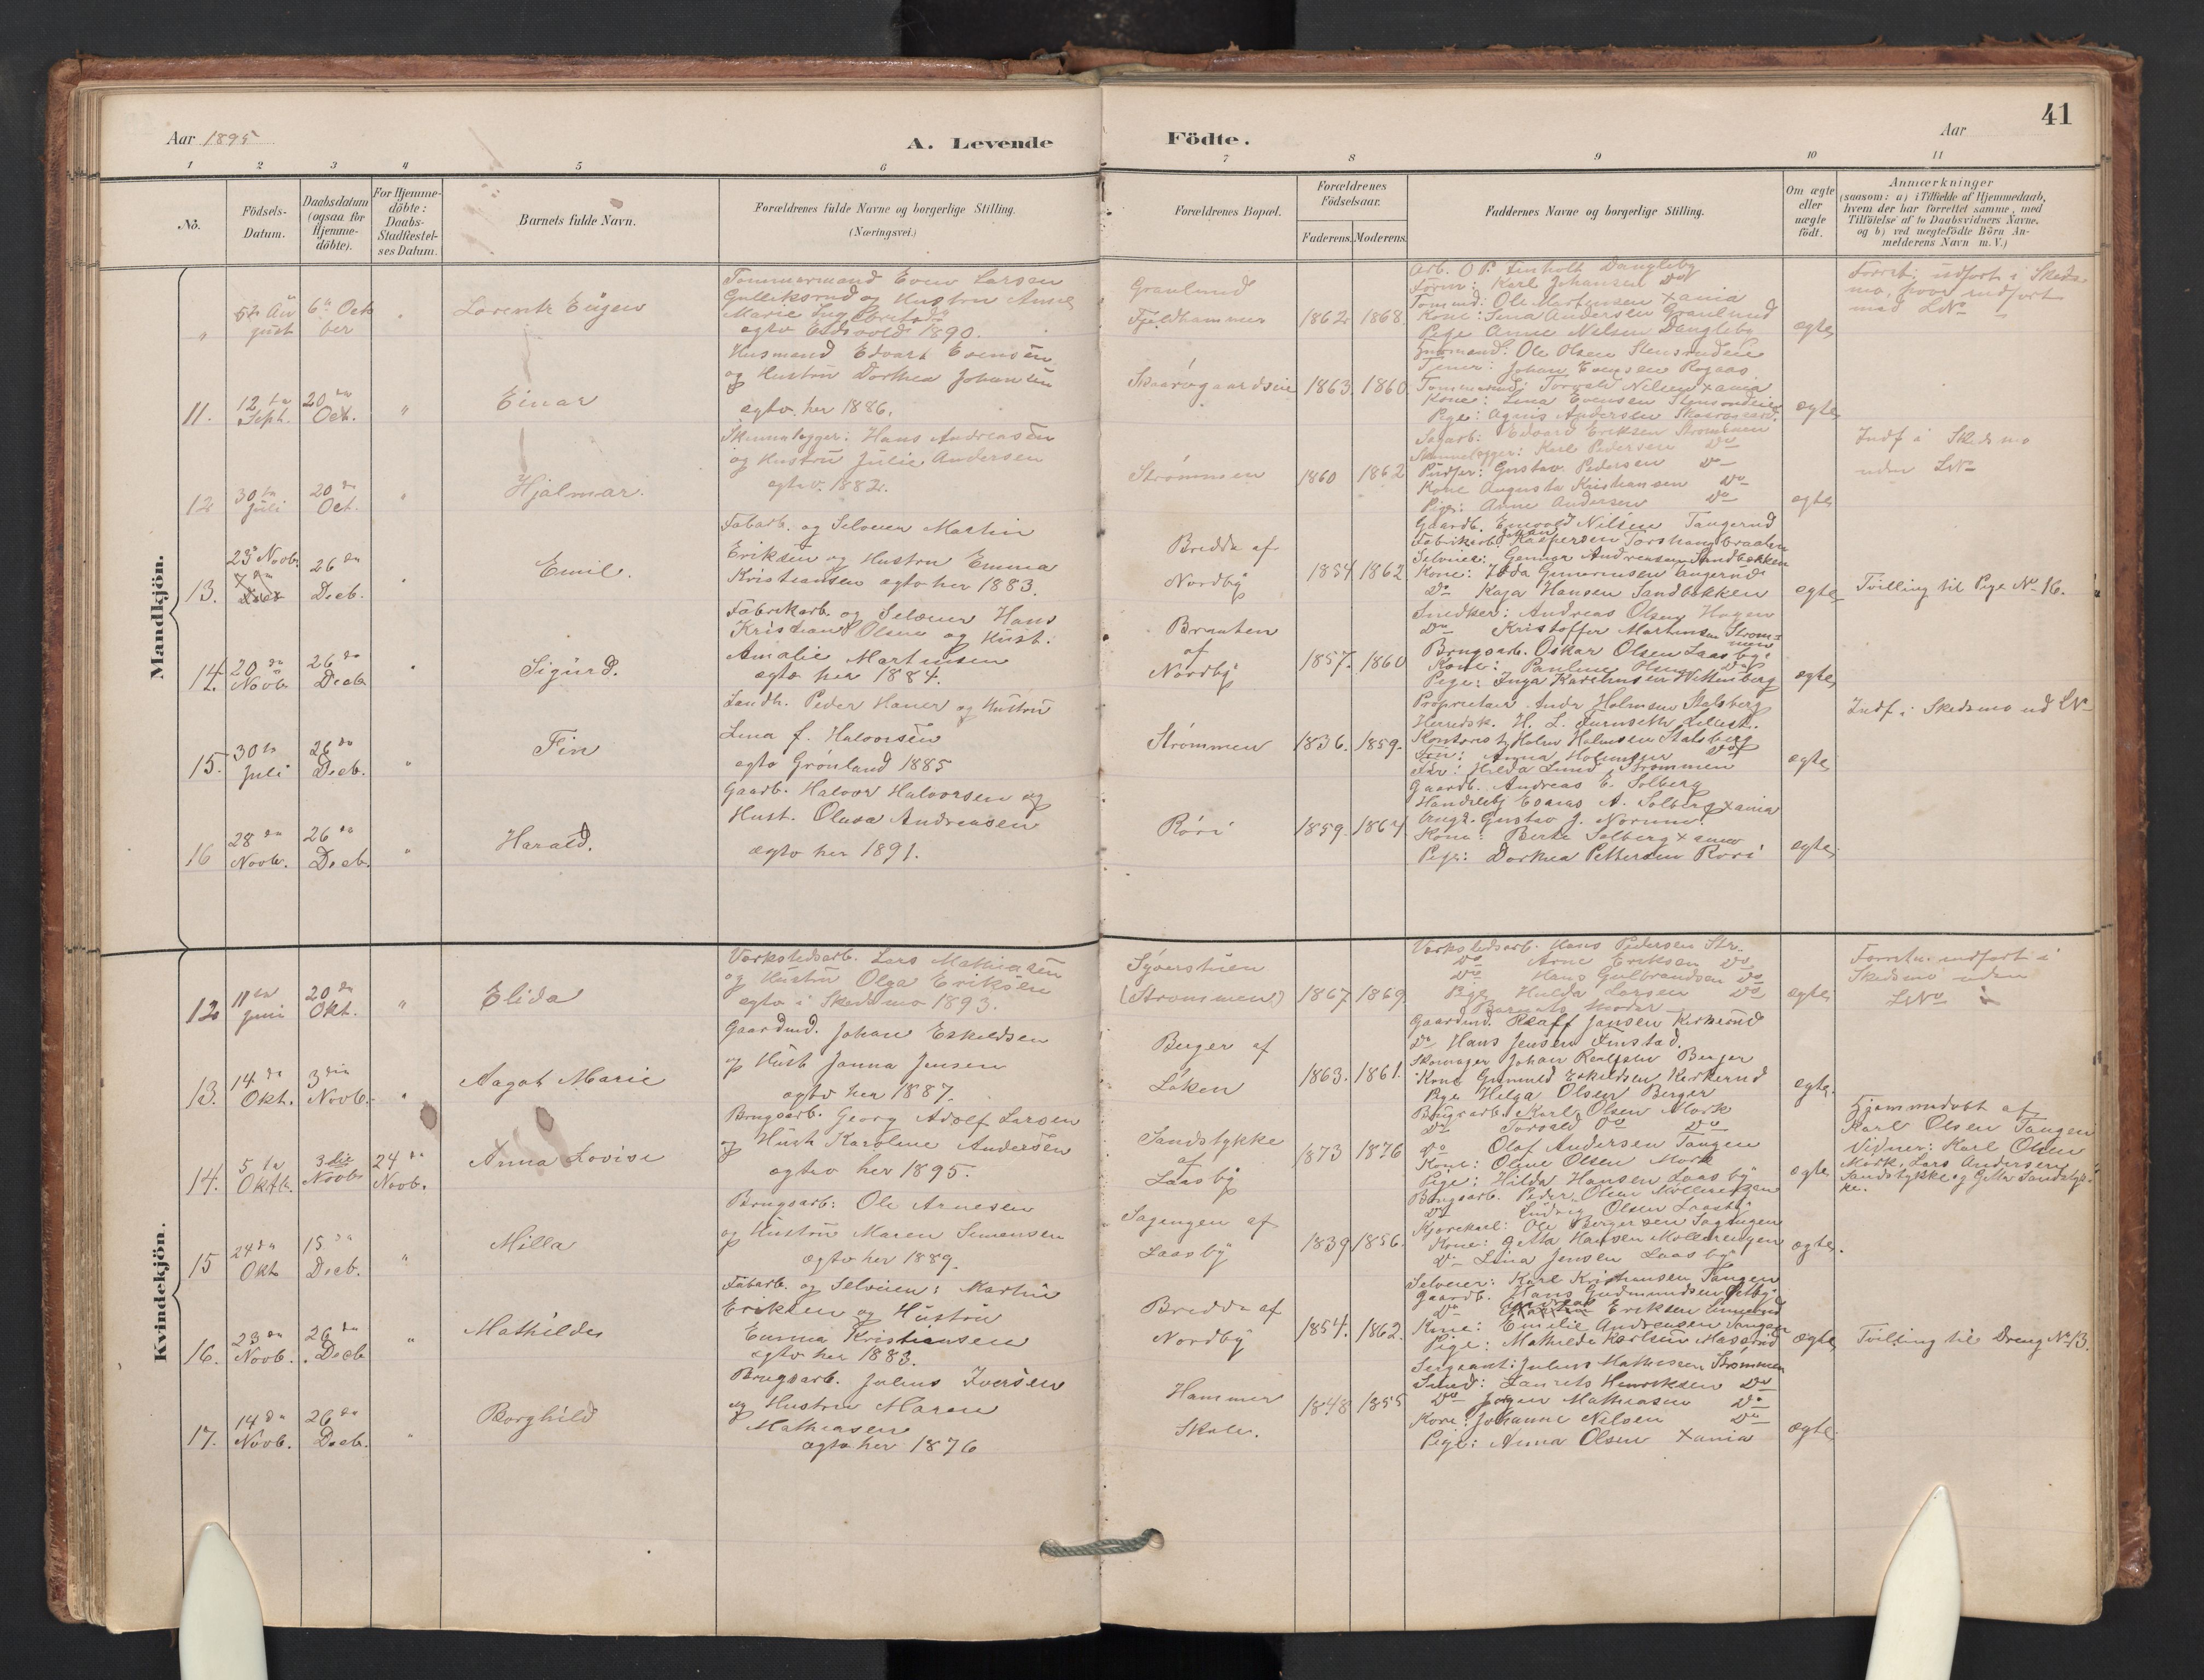 41
Aar 1895
A. Levende
Födte.
Aar
1 2 3 4 5 6 7 8 9 10 11
No.
Födsels-
Datum.
Daabsdatum
(ogsaa for
Hjemme-
döbte).
For Hjemme-
döbte:
Daabs-
Stadfæstel-
ses Datum.
Barnets fulde Navn.
Forældrenes fulde Navne og borgerlige Stilling.
(Næringsvei.)
Forældrenes Bopæl.
Forældrenes
Födselsaar.
Faderens.
Moderens.
Faddernes Navne og borgerlige Stilling.
Om ægte
eller
uægte
födt.
Anmærkninger
(saasom: a) i Tilfælde af Hjemmedaab,
hvem der har forrettet samme, med
Tilföielse af to Daabsvidners Navne.
og b) ved uægtefödte Börn An-
melderens Navn m. V.)
Mandkjön.
"
5te Au
gust
6te Octo
ber
"
Lorentz Eugen
Tømmermand Even Larsen
Gulliksrud og Hustru Anne
Marie
egtev Eidsvold 1890.
Granlund
Fjeldhammer
1862
1868
Arb. O. P. Finholt Dangleby
Form: Karl Johansen Do
Tommd: Ole Martinsen Xania
Kone: Lina Andersen Granlund
Pige Anne Nilsen Dangleby
egte
Forret. indført i Skeds
mo, hvor indført
med LNo
11.
12te
Sept.
20de
Oct.
"
Einar
Husmand Edvart Evensen
og Hustru Dorthea Johansen
egtev. her 1886.
Skaarergaardseie
1863
1860
Husmand: Ole Olsen Stensrudeie
Tjener: Johan Evensen Rogaas
Tommermd Torvald Nilsen Xania
Kone: Lina Evensen Stensrudeie
Pige: Agnes Andersen Skaarergaard.
egte
12
30te
Juli
20de
Oct.
"
Hjalmar.
Skinnelægger: Hans Andreasen
og Hustru Julie Andersen
egtev. 1882.
Strømmen
1860
1862
Sagarb: Edvard Eriksen Strømmen
Skinnelægger: Karl Pedersen Do
Pudser: Gustav Pedersen Do
Kone Augusta Kristiansen Do
Pige: Anne Andersen Do
egte
Indf i Skedsmo
under LNo
13.
23de Novb.
26de
Decb.
"
Emil.
Fabarb. og Selveier Martin
Eriksen og Hustru Emma
Kristiansen egtev her 1883.
Bredde af
Nordby
1854
1862
Gaardb. Enevold Nilsen Tangerud
Fabrikarb. Johan Kaspersen Torshaugbraaten
Selveier: Gunnar Andreasen Sandbækken
Kone: Ida Gunarinsen Tangerud
Do Kaja Hansen Sandbækken
egte
Tvilling til Pige No 16.
14.
20de
Novb.
26de
Decb
"
Sigurd.
Fabrikarb. og Selveier Hans
Kristian Olsen og Hust.
Amalie Martinsen
egtev her 1884.
Braaten
af
Nordby
1857.
1860
Snedker: Andreas Olsen Hagen
Do Kristoffer Martinsen Strøm-
men
Brugsarb. Oskar Olsen Laasby
Kone: Pauline Olsen Do
Pige: Inga Karelinsen Wittenberg
egte
15.
30te
Juli
26de
Decb.
"
Fin
Landh. Peder Haner og Hustru
Lina f. Halvorsen
egtev Grønland 1885
Strømmen
1836.
1859.
Proprietær Andr Holmsen Stalsberg
Herredsk. H. L. Furuseth Lillest.
Kontorist Holm Holmsen Stalsberg
Frk: Anna Holmsen Do
Fr: Hilda Lund Strømmen
egte
Indf i Skedsmo ud LNo
16
28de
Novb.
26de
Decb.
"
Harald.
Gaardb. Halvor Halvorsen og
Hust. Olava Andreasen
egtev her 1891.
Røri
1859.
1864
Gaardb. Andreas E. Solberg
Handelsbj Esaias A. Solberg Xania
Gustav J. Norum
Kone: Berte Solberg Xania
Pige: Dorthea Pettersen Røri
egte
Kvindekjön.
12
11te
Juni
20de
Okt.
"
Elida
Værkstedsarb. Lars Mathiasen
og Hustru Olga Eriksen
egtev i Skedsmo 1893.
Syverstuen
(Strømmen)
1867
1869
Værkstedsarb. Hans Pedersen Str.
Do Arne Eriksen Do
Do Hans Gulbrandsen Do
Pige Hulda Larsen Do
Barnets Moder
egte
Forretn. indført i
Skedsmo uden
LNo
13.
14de
Okt.
3die
Novb.
"
Aagot Marie
Gaardmd. Johan Eskildsen
og Hust Janna Jensen
egtev her 1887.
Berger af
Løken
1863.
1861.
Gaardmd. Realf Jansen Kirkerud
Do Hans Jensen Finstad.
Skomager Johan Realfsen Berger
Kone Gunhild Eskildsen Kirkerud
Pige Helga Olsen Berger
egte.
14.
5te
Oktb.
3die
Novb
24de
Novb.
Anna Lovise
Brugsarb. Georg Adolf Larsen
og Hust Karoline Andersen
egtev her 1895.
Sandstykke
af
Laasby
1873
1876
Brugsarb. Karl Olsen Mork
Do Torvald Do Do
Do Olaf Andersen Tangen
Kone: Oline Olsen Mork
Pige: Hilda Hansen Laasby
egte
Hjemmedøbt af
Karl Olsen Tangen
Vidner: Karl Olsen
Mork, Lars Andersen
Sandstykke og Sandstyk-
ke.
15
24de
Okt
15de
Decb.
"
Milla
Brugsarb: Ole Arnesen
og Hustru Maren Simensen
egtev her 1889.
Sagengen af
Laasby
1839
1856.
Brugsarb. Peder Olsen Møllerengen
Do Ludvig Olsen Laasby
Kjørekarl: Ole Bergersen Sagengen
Kone: Gitta Hansen Møllerengen
Do Lina Jensen Laasby
egte.
16.
23de
Novb.
26de
Decb
"
Mathilde
Fabarb. og Selveier: Martin
Eriksen og Hustru
Emma Kristiansen
egtev her 1883.
Bredde af
Nordby
1854.
1862.
Selveier: Karl Kristiansen Tangen
Gaardb. Hans Gudmundsen Østby
Do Andreas Eriksen Linnerud
Kone: Emilie Andreasen Tangen
Pige: Mathilde Karlsen Haserud
ægte
Tvilling til Dreng No 13.
17.
14de
Novb.
26de
Decb.
"
Borghild
Brugsarb. Julius Iversen
og Hustru Maren
Mathiasen
egtev her 1876
Hammer
Skole.
1848
1855
Sergeant: Julius Mathiesen Strømmen
Smed: Laurits Henriksen Do
Do Jørgen Mathiasen Do
Kone: Johanne Nilsen Do
Pige: Anna Olsen Xania
ægte